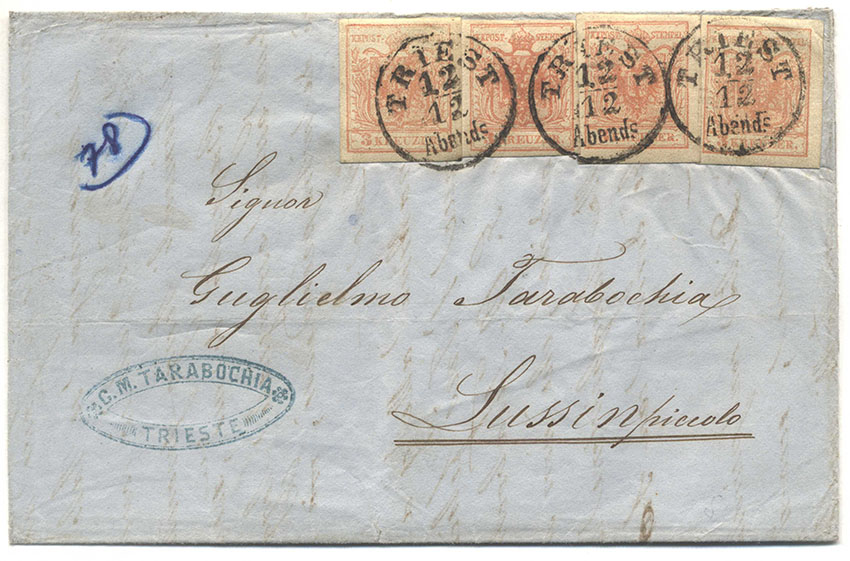 KKPOST-STEMPEL KKPOST-STEMPEL KKPOST-STEMPEL
TRIEST TRIEST TRIEST
12 12 12
12 12 12
Abends Abends Abends
3 KREUZER
78
Signor
Guglielmo Tarabochia
Lussinpiccolo
G. M. TARABOCHIA
TRIESTE